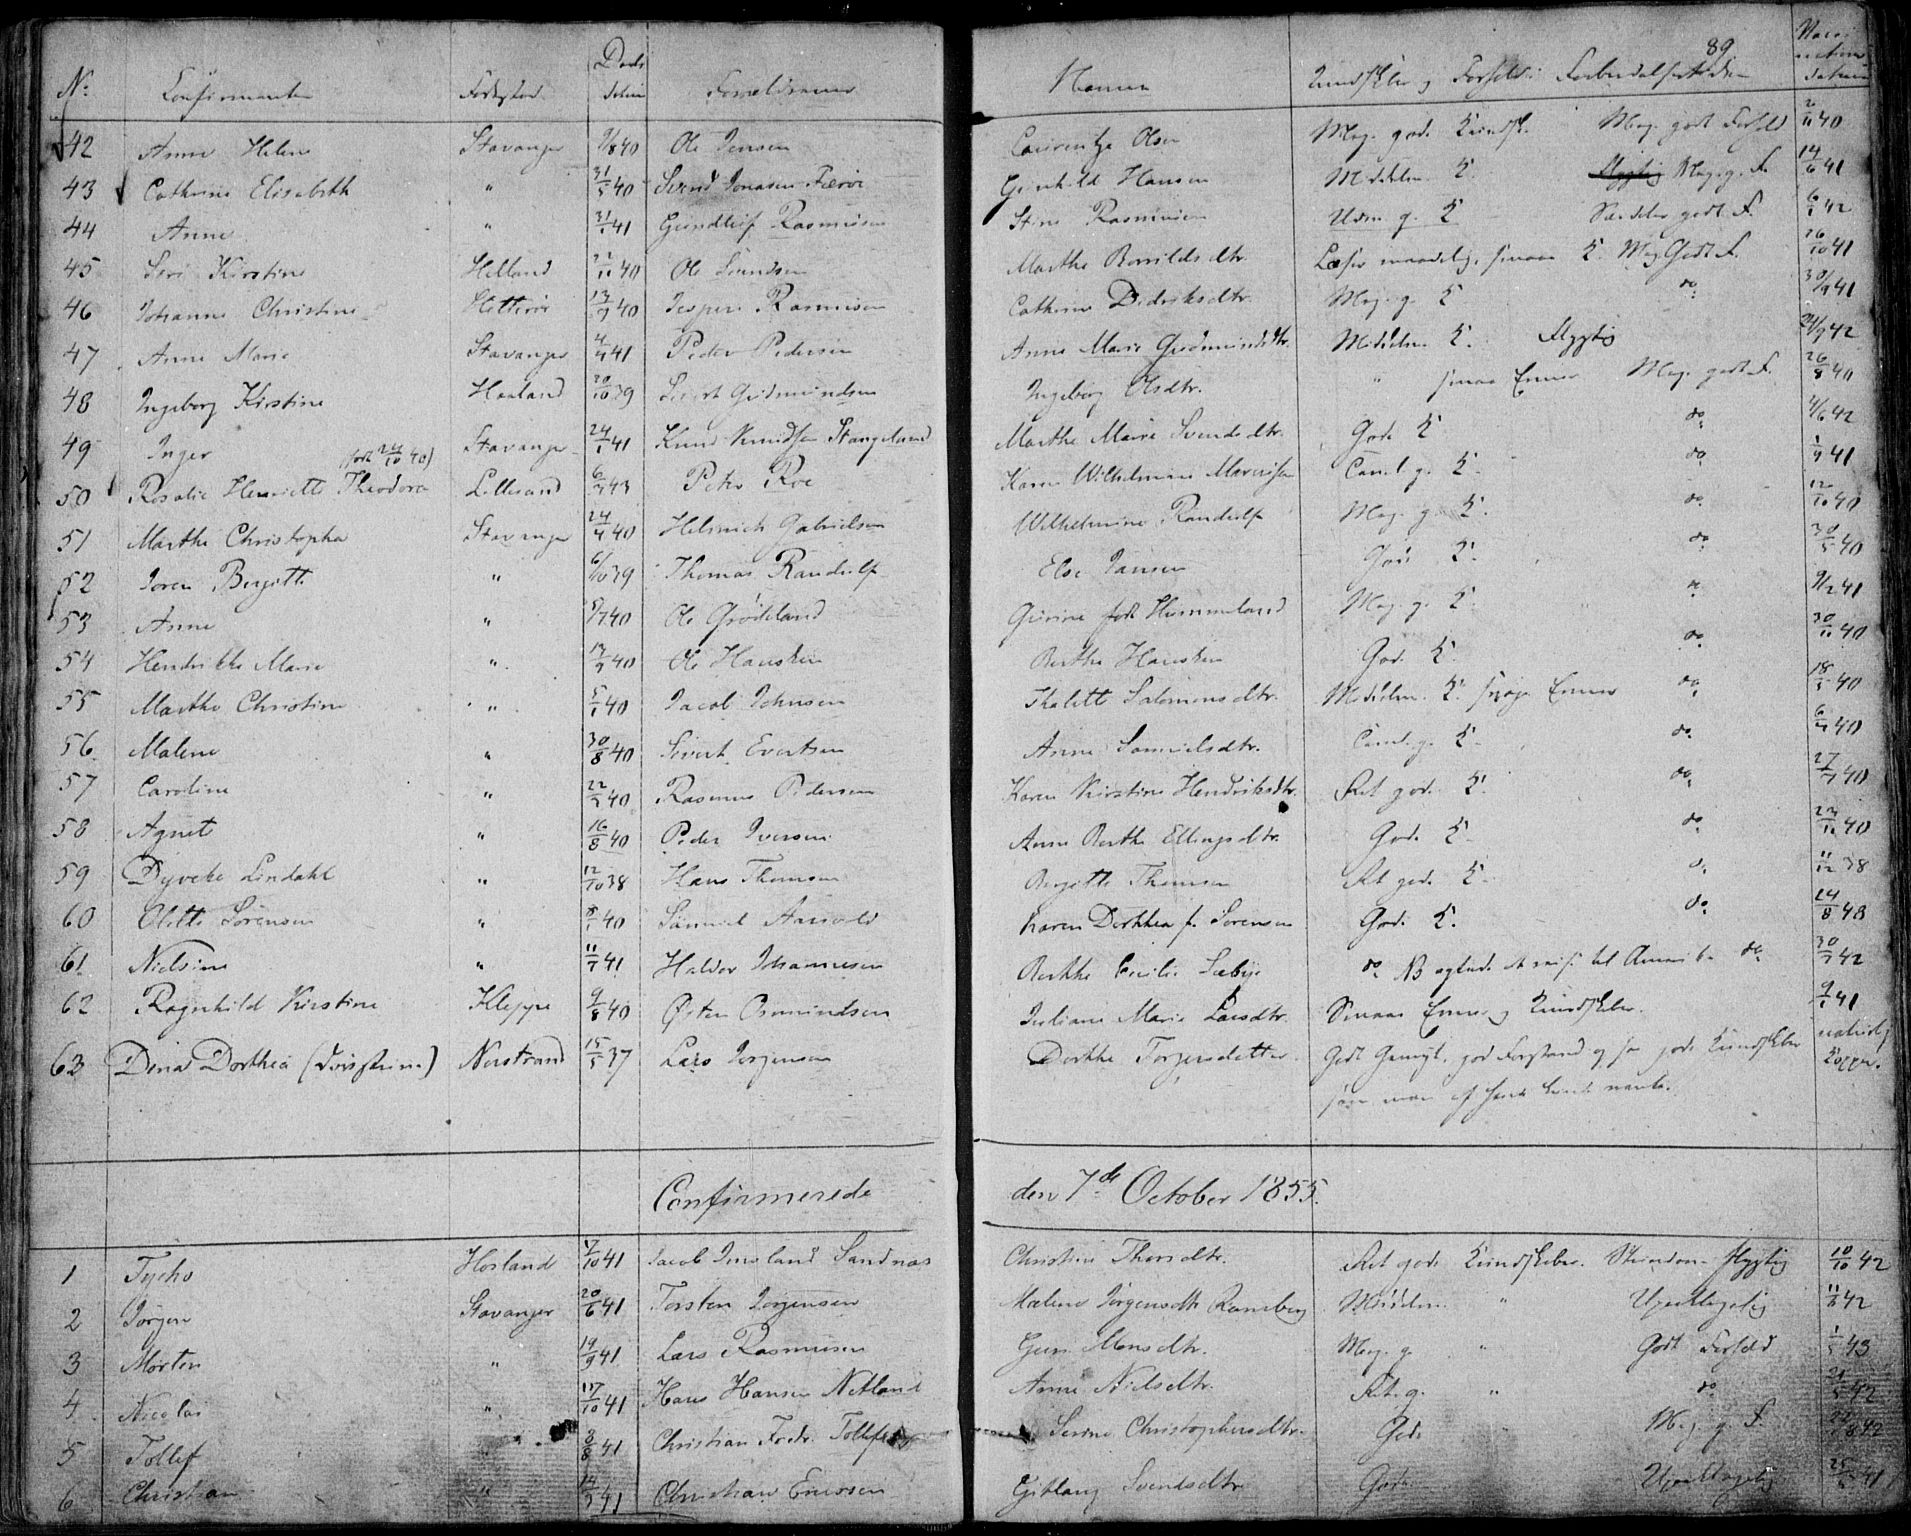 89
No. Confirmanten Fødested Daabs datum Forældrenes Navne Kundskaber og Forhold Vaccinations datum
42 Anne Helene Stavanger 9/8 40 Ole Jensen Laurentze Olsen Meg. gode Kundsk. Meg. godt Forhold 2/11 40
43 Cathrine Elisabeth " 31/5 40 Svend Jonasen Færøe Gunhild Hansen Middelm. K. Meg. g. F. 14/6 41
44 Anne " 31/1 41 Gundleif Rasmussen Stine Rasmussen Udm. g. K Særdeles godt F. 6/1 42
45 Siri Kirstine Helland 22/11 40 Ole Svendsen Marthe Bouildsdtr. Læser maadelig, smaa K. Meg. Godt F. 26/10 41
46 Johanne Christine Hetterøe 13/7 40 Jesper Rasmussen Cathrine Didriksdtr. Meg. g. K do 30/9 41
47 Anne Marie Stavanger 4/4 41 Peder Pedersen Anne Marie Gudmundsdtr. Middelm. K. Flygtig 24/9 42
48 Ingeborg Kirstine Haaland 20/10 39 Sivert Gudmundsen Ingeborg Olsdtr. " smaa Evner Meg. godt F. 26/8 40
49 Inger Stavanger 24/1 41 Knud Knudsen Stangeland Marthe Marie Svendsdtr. Gode K do 4/6 42
50 Rosalie Henriette Theodora (født 24/10 40) Lillesand 6/7 43 Peter Roe Karen Wilhelmine Marcussen Taml. g. K. do 1/9 41
51 Marthe Christopha Stavanger 24/4 40 Helmich Gabrielsen Wilhelmine Randulf Meg. g. K. do 12/10 40
52 Joren Birgitte " 6/10 39 Thomas Randulf Else Jansen Gode K. do 30/5 40
53 Anne " 5/7 40 Ole Grødeland Gurine født Hummeland Meg. g. K. " 9/2 41
54 Hendrikke Marie " 19/7 40 Ole Hausken Berthe Hausken Gode K. do 30/11 40
55 Marthe Christine " 5/1 40 Jacob Johnsen Thalette Salomonsdtr. Middelm. K. svage Evner do 18/5 40
56 Malene " 30/8 40 Sivert Evertsen Anne Samuelsdtr. Taml. g. K. do 6/9 40
57 Caroline " 22/3 40 Rasmus Pedersen Karen Kirstine Hendriksdtr. Ret gode K. do 27/9 40
58 Agnete " 16/8 40 Peder Iversen Anne Berthe Ellingsdtr. Gode K do 23/10 40
59 Dyveke Lindahl " 12/10 38 Hans Thomsen Birgitte Thomsen Ret gode K. do 11/12 38
60 Olette Sørensen " 8/1 40 Samuel Aarvold Karen Dorthea f. Sørensen Gode K. do 24/8 43
61 Nielsine " 11/7 41 Haldor Johannesen Berthe Cecilie Sæbye do NB agtede at reise til Amerika do 30/7 42
62 Ragnhild Kirstine Kleppe 9/8 40 Østen Osmundsen Juliane Marie Larsdtr. Smaae Evner og Kundskaber. 9/1 41
63 Dina Dorthea Nerstrand 15/5 37 Lars Jørgensen Dorthe Torgersdatter Godt Gemyt, god Forstand og saa gode Kundskaber naturlige Kopper.
som man af hende kunde vente.
Confirmerede den 7de October 1855.
1 Tycho Høsland 17/10 41 Jacob Imsland Sandnæs Christine Thorsdtr. Ret gode Kundskaber. Stundom flygtig 10/10 42
2 Jørgen Stavanger 20/6 41 Torsten Jørgensen Malene Jørgensdtr Ramsberg Middelm. " Upaaklagelig 11/6 42
3 Morten " 19/9 41 Lars Rasmussen Guri Monsdtr. Meg. g " Godt Forhold 1/5 43
4 Nicolai " 17/10 41 Hans Hansen Netland Anne Nielsdtr. Ret g. " do 21/5 42
5 Tollef " 3/8 41 Christian Fredr. Tollefsen Serine Christophersdtr. Gode Meg. g. F. 42
6 Christian " 14/3 41 Christian Enersen Gitlaug Svendsdtr. Gode Upaaklagelig 25/ 41